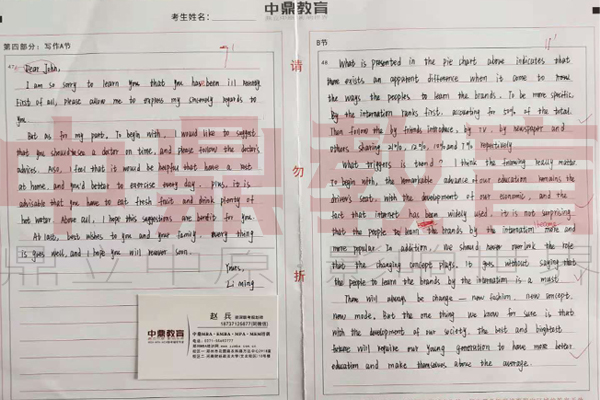 中鼎教育
考生姓名：
第四部分：写作A节
7'
47
Dear John,
I am so sorry to learn you that you has been ill
First of all, please allow me to express my sincerely regards to
you.
But as for my part. To begin with, I would like to suggest
that you should see a doctor on time, and please follow the doctor's
advices. Also, I feel that it would be helpful that have a rest
at home, and you'd better to exercise every day. Plus, it is
advisable that you have to eat fresh fruit and drink plenty of
hot water. Above all, I hope this suggestions are benefit for you.
At last, best wishes to you and your family. every thing
is goes well, and I hope you will recover soon.
Yours,
Li ming
中鼎教育
赵 兵
18737126877
中鼎MBA·EMBA·MPA·MEM
请
勿
折
B节
11'
48
What is presented in the pie chart above indicates that
there exists an apparent difference when it came to
the ways the peoples to learn the brands. To be more specific,
By the internation ranks first, accounting for 50% of the total.
Then follow the by friends introduce, by TV, by newspaper and
others, sharing 21%, 12%, 10% and 7%
What triggers is trend? I think the following really matter.
To begin with, the remarkable advance of our education remains the
driver's seat. With the development of our economic, and the
fact that internet has been widely used, it is not surprising
that the people to learn the brands by the internation more and
more popular. In addition, We should never overlook the role
that the changing concept plays. It goes without saying that
the people to learn the brands by the internation is a must.
There will always be change — new fashion, new concept,
new mode. But the one thing we know for sure is that
with the development of our society. The best and brightest
future will require our young generation to have more better
education and make themselves above the average.
中鼎教育
鼎立中原